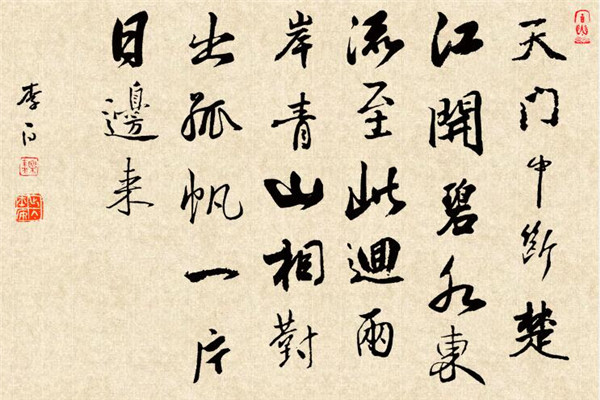 天門中斷楚
江開碧水東
流至此迴兩
岸青山相對
出孤帆一片
日邊来
李白